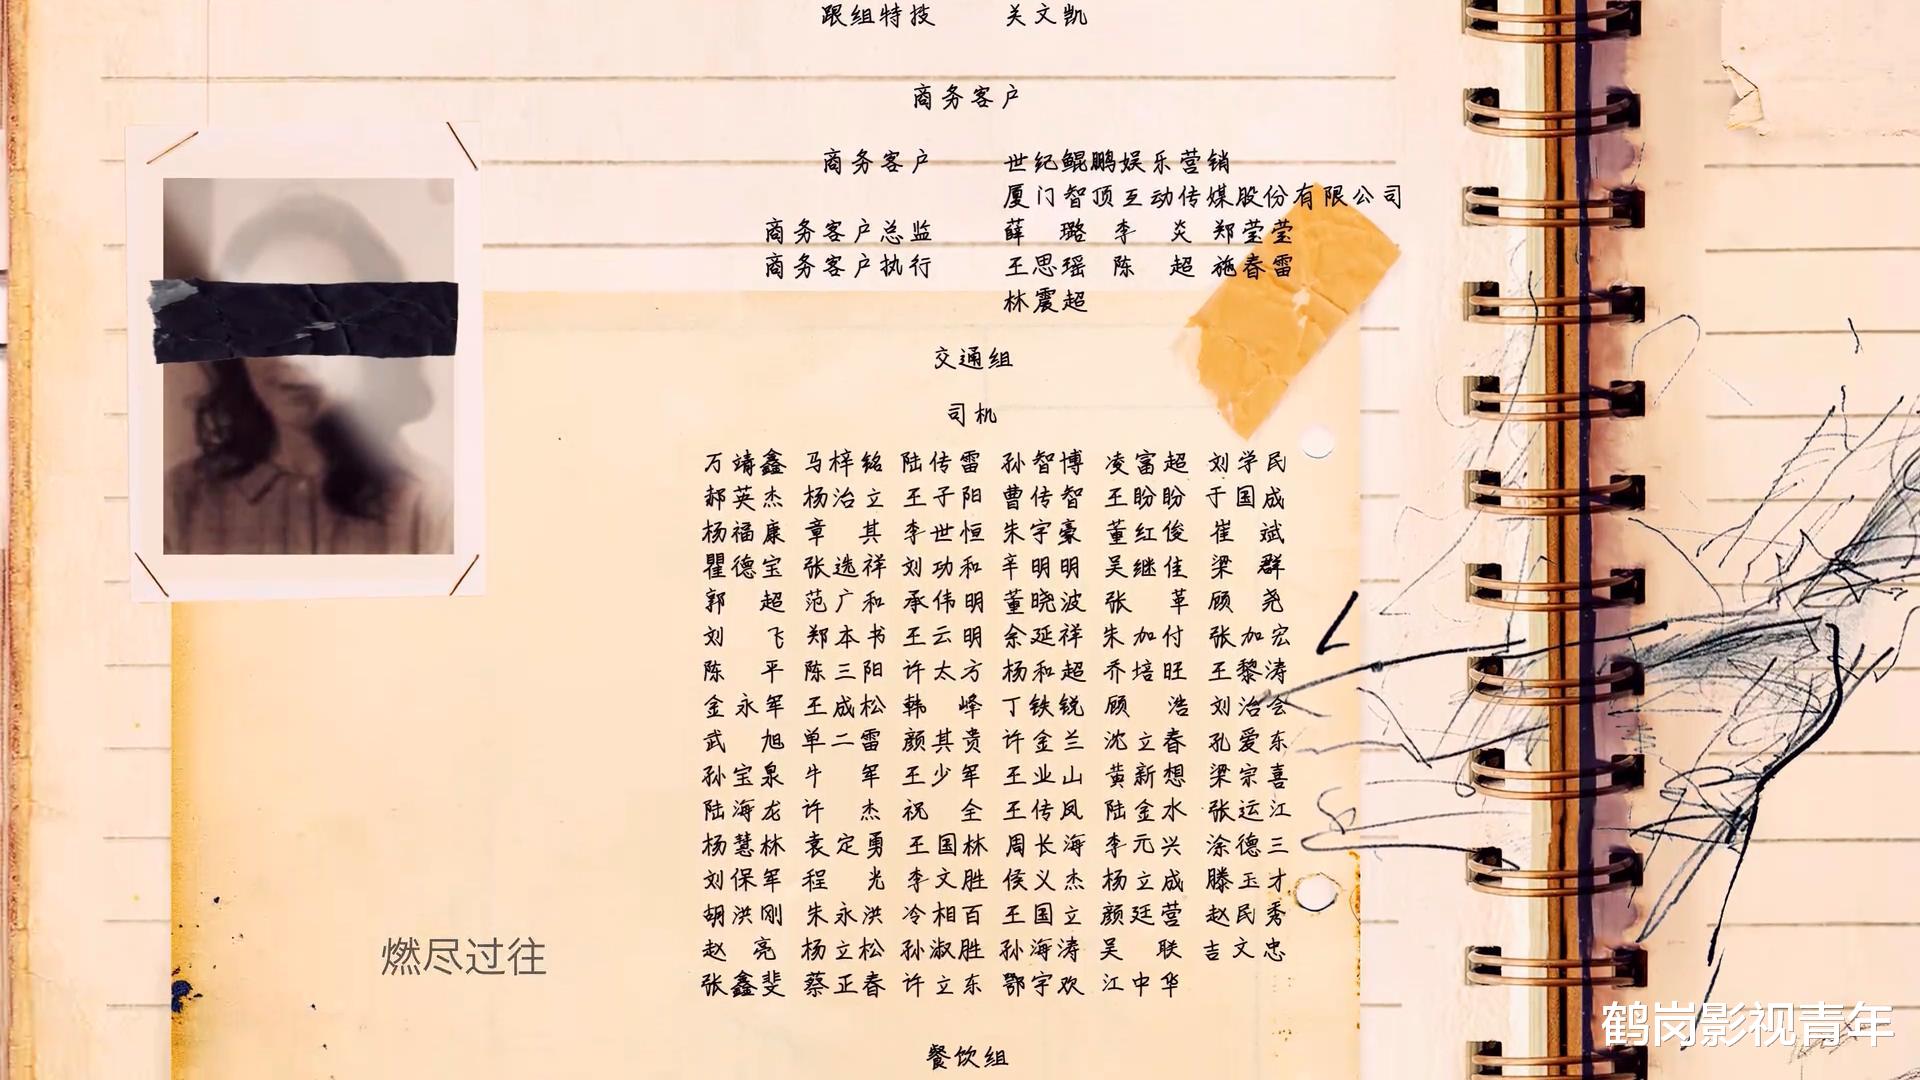 跟组特技 关文凯
商务客户
商务客户 世纪鲲鹏娱乐营销
厦门智顶互动传媒股份有限公司
商务客户总监 薛璐 李炎 郑莹莹
商务客户执行 王思瑶 陈超 施春雷
林震超
交通组
司机
万靖鑫 马梓铭 陆传雷 孙智博 凌富超 刘学民
郝英杰 杨治立 王子阳 曹传智 王盼盼 于国成
杨福康 章其 李世恒 朱宇豪 董红俊 崔斌
瞿德宝 张选祥 刘功和 辛明明 吴继佳 梁群
郭超 范广和 承伟明 董晓波 张革 顾尧
刘飞 郑本书 王云明 余延祥 朱加付 张加宏
陈平 陈三阳 许太方 杨和超 乔培旺 王黎涛
金永军 王成松 韩峰 丁铁锐 顾浩 刘治会
武旭 单二雷 颜其贵 许金兰 沈立春 孔爱东
孙宝泉 牛军 王少军 王业山 黄新想 梁宗喜
陆海龙 许杰 祝全 王传凤 陆金水 张运江
杨慧林 袁定勇 王国林 周长海 李元兴 涂德三
刘保军 程光 李文胜 侯义杰 杨立成 滕玉才
胡洪刚 朱永洪 冷相百 王国立 颜廷营 赵民秀
赵亮 杨立松 孙淑胜 孙海涛 吴联 吉文忠
张鑫斐 蔡正春 许立东 鄂宇欢 江中华
燃尽过往
鹤岗影视青年
餐饮组